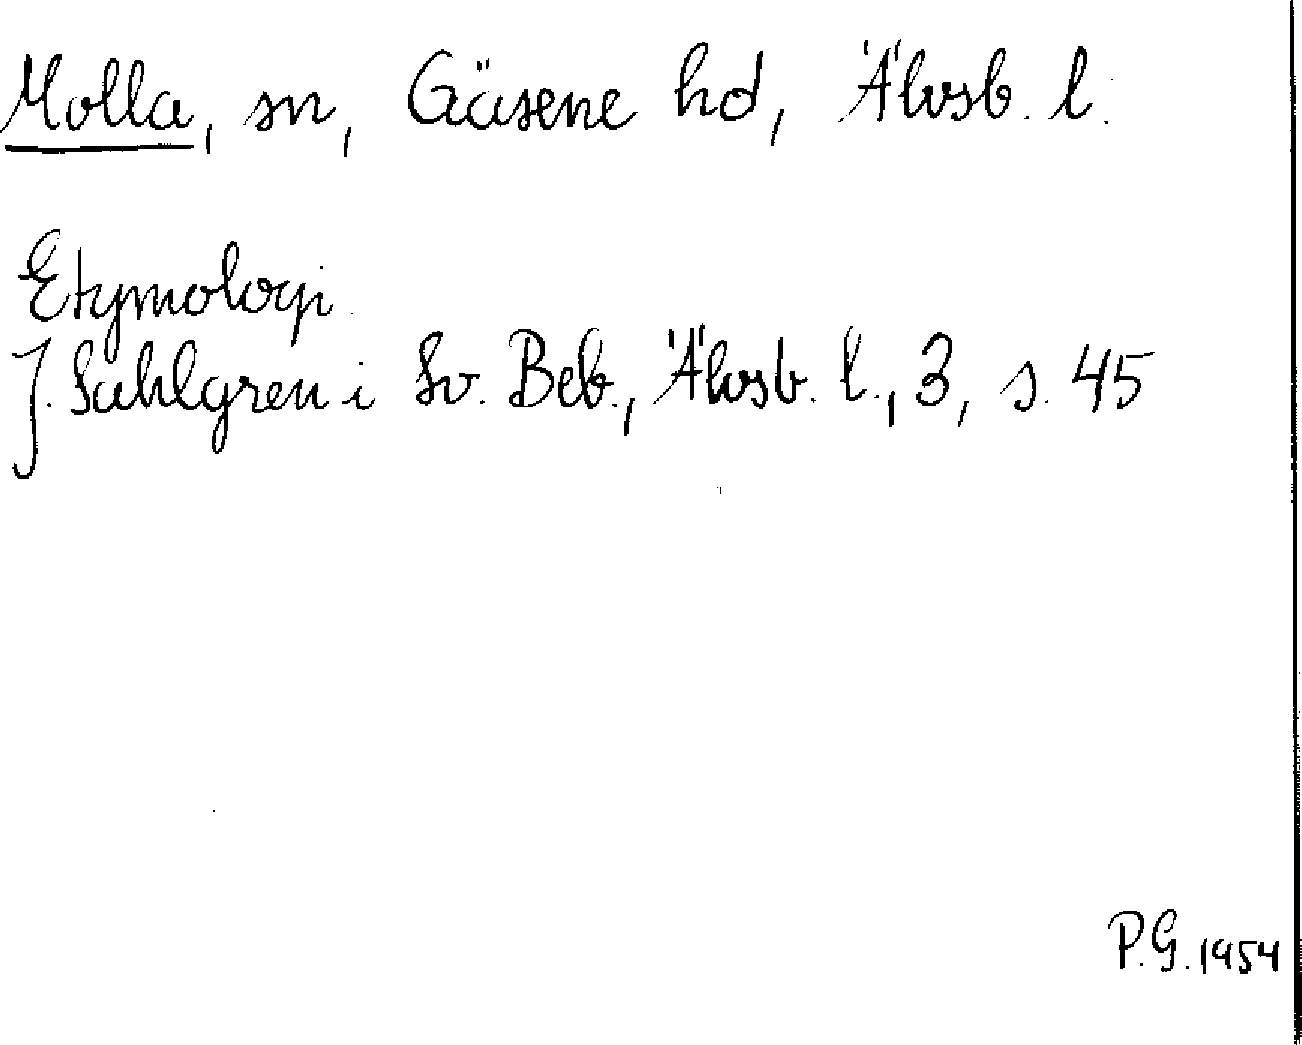 Molla, sn, Gäsene hd, Älvsb. l.
Etymologi
J. Sahlgren i Sv. Beb., Älvsb. l., 3, s. 45
P.G. 1954